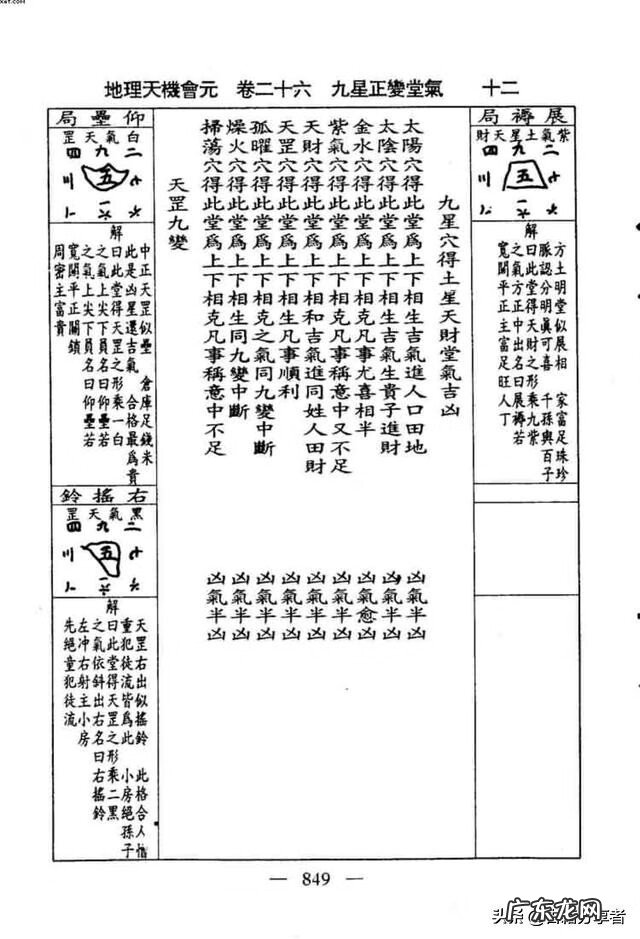 地理天機會元 卷二十六 九星正變堂氣 十二
展褥局
紫氣土星天財
四九二
三五七
八一六
解
方土明堂似展相 家富足珠珍
脈認分明眞可喜 千孫與百子
曰此堂得天財之形乘九紫
之氣方正中出名曰展褥若
寬闊平正主富足旺人丁
九星穴得土星天財堂氣吉凶
太陽穴得此堂爲上下相生吉氣進人口田地 凶氣半凶
太陰穴得此堂爲上下相生吉氣生貴子進財 凶氣半凶
金水穴得此堂爲上下相克凡事尤喜相半 凶氣愈凶
紫氣穴得此堂爲上下相克凡事稱意中又不足 凶氣半凶
天財穴得此堂爲上下相和吉氣進同姓人田財 凶氣半凶
天罡穴得此堂爲上下相生凡事順利 凶氣半凶
孤曜穴得此堂爲上下相克之氣同九變中斷 凶氣半凶
燥火穴得此堂爲上下相生同九變中斷 凶氣半凶
掃蕩穴得此堂爲上下相克凡事稱意中不足 凶氣半凶
天罡九變
仰壘局
白氣天罡
四九二
三五七
八一六
解
中正天罡似壘 倉庫足錢米
此是凶星還吉氣 合格最爲貴
曰此堂得天罡之形乘一白
之氣上尖下員名曰仰壘若
寬闊平正關鎖
周密主富貴
右搖鈴
黑氣天罡
四九二
三五七
八一六
解
天罡右出似搖鈴 此格合人惜
重犯徒流皆爲此 小房絕孫子
曰此堂得天罡之形乘二黑
之氣依斜出右名曰右搖鈴
左冲右射主小房
先絕童犯徒流
— 849 —
广东龙网